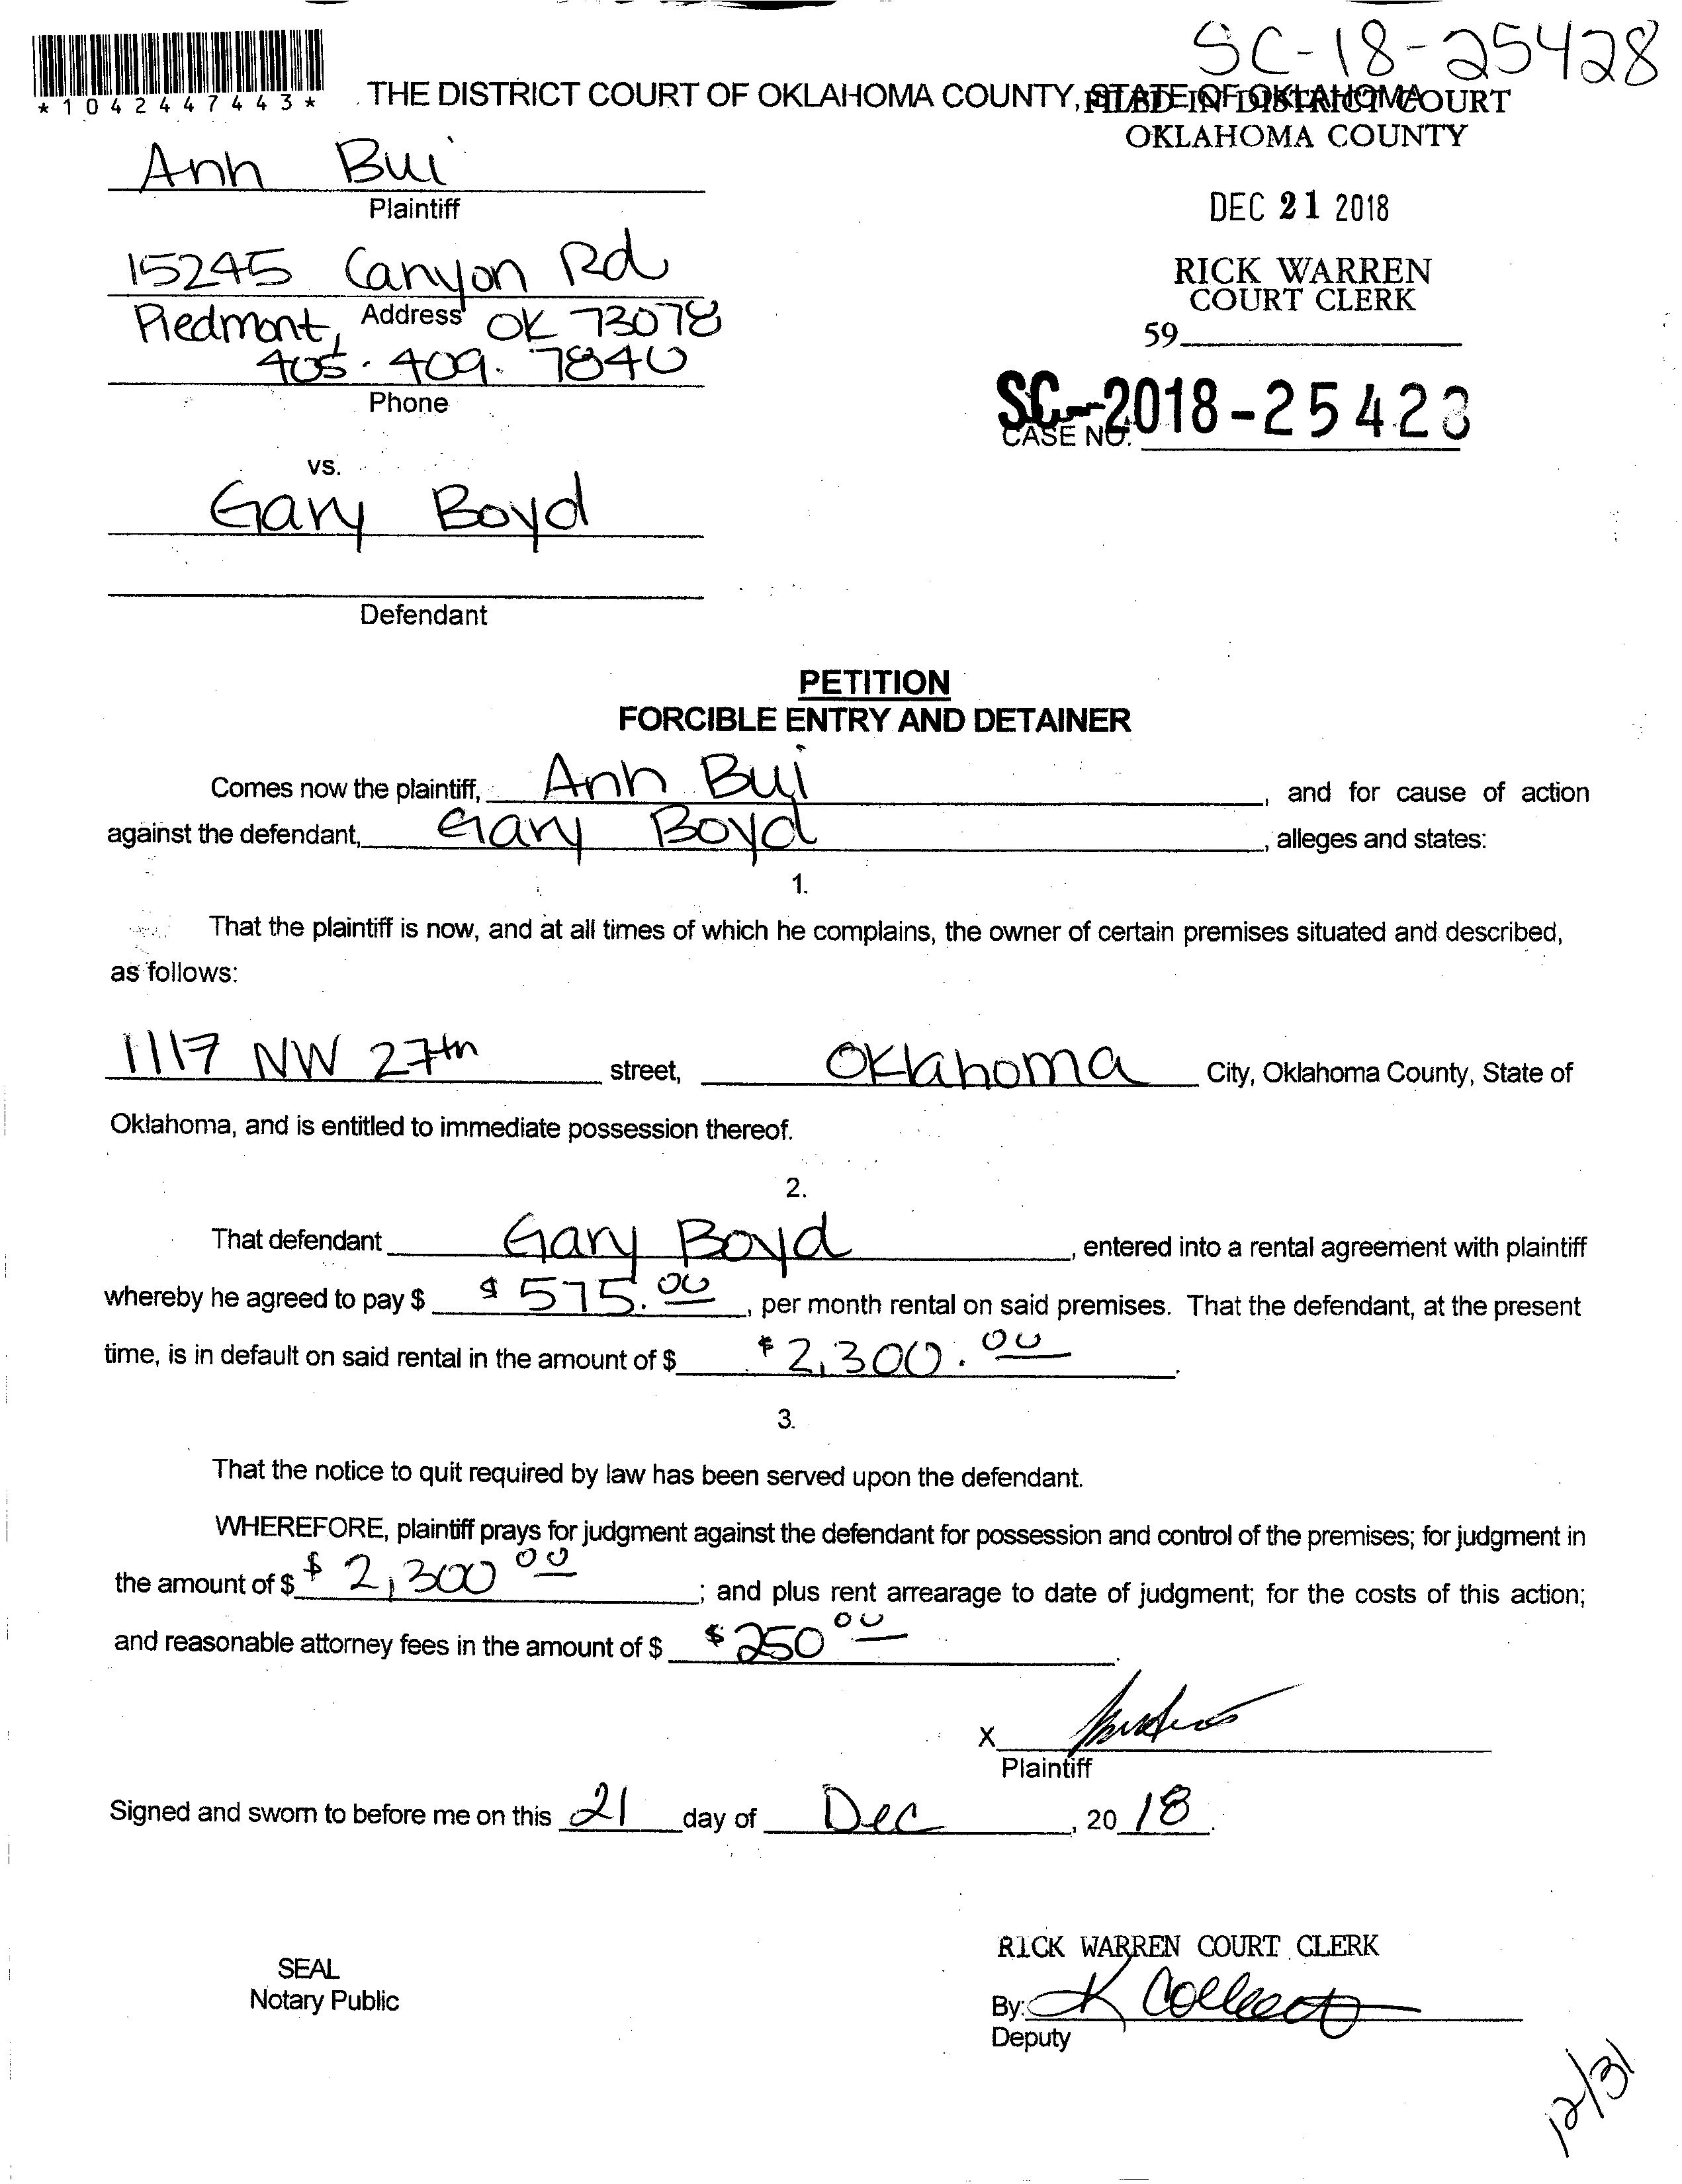 SC-18-25428
*1042447443*
THE DISTRICT COURT OF OKLAHOMA COUNTY, STATE OF OKLAHOMA
FILED IN DISTRICT COURT
OKLAHOMA COUNTY
Anh Bui
Plaintiff
DEC 21 2018
15245 Canyon Rd
RICK WARREN
COURT CLERK
Address
Piedmont, OK 73078
59
405. 409. 7840
Phone
SC-2018-25428
CASE NO.
vs.
Gary Boyd
Defendant
PETITION
FORCIBLE ENTRY AND DETAINER
Comes now the plaintiff, Anh Bui, and for cause of action
against the defendant, Gary Boyd, alleges and states:
1.
That the plaintiff is now, and at all times of which he complains, the owner of certain premises situated and described,
as follows:
1117 NW 27th street, Oklahoma City, Oklahoma County, State of
Oklahoma, and is entitled to immediate possession thereof.
2.
That defendant Gary Boyd, entered into a rental agreement with plaintiff
whereby he agreed to pay $ $ 575.00, per month rental on said premises. That the defendant, at the present
time, is in default on said rental in the amount of $ $2,300.00.
3.
That the notice to quit required by law has been served upon the defendant.
WHEREFORE, plaintiff prays for judgment against the defendant for possession and control of the premises; for judgment in
the amount of $ $ 2,300 00; and plus rent arrearage to date of judgment; for the costs of this action;
and reasonable attorney fees in the amount of $ $250 00.
X
Plaintiff
Signed and sworn to before me on this 21 day of Dec, 20 18.
RICK WARREN COURT CLERK
SEAL
Notary Public
By: K
Deputy
12/31